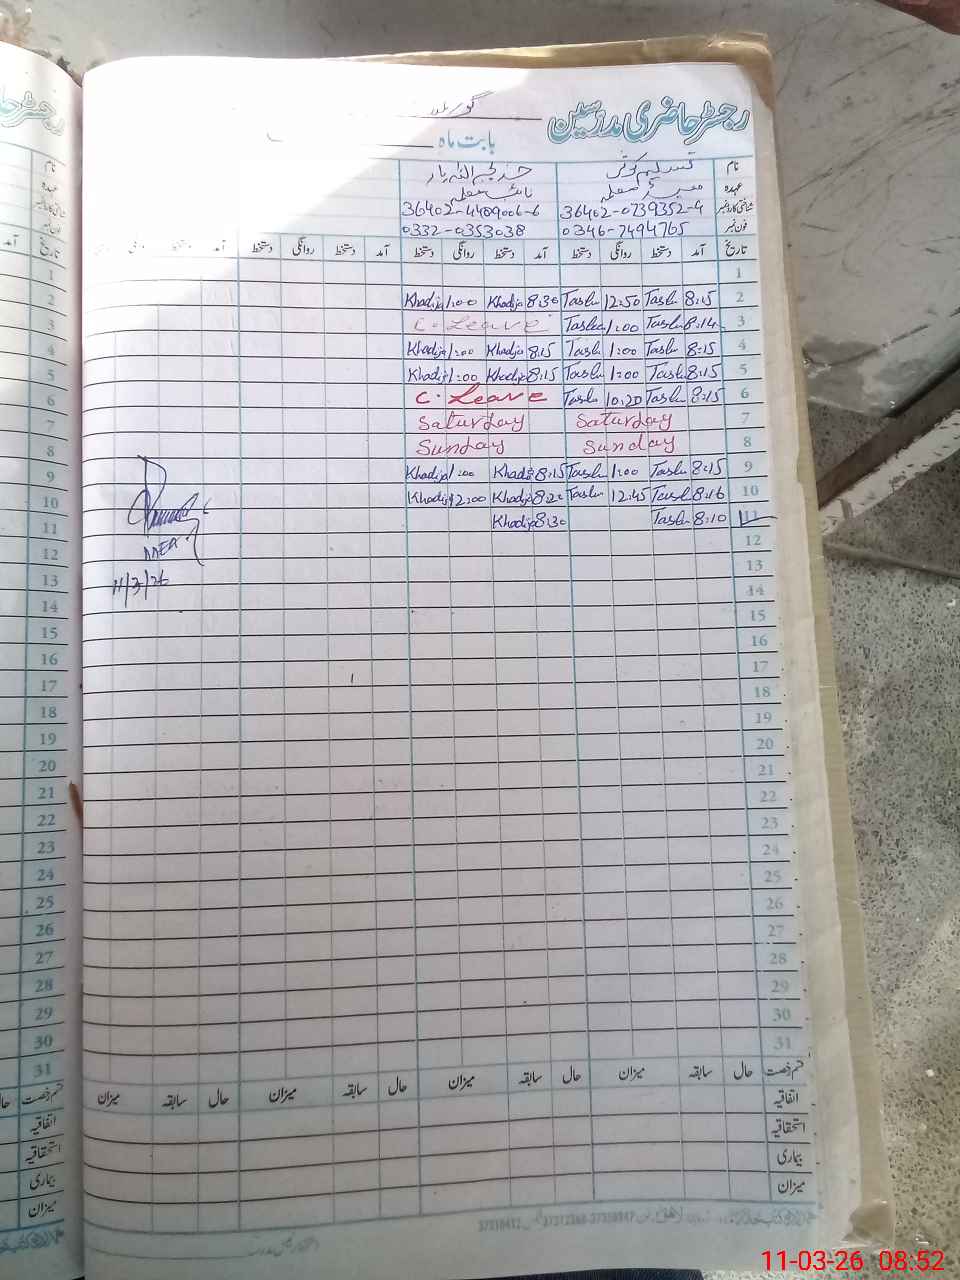 رجسٹر حاضری مدرسین
بابت ماہ
نام تسلیم کوثر خدیجہ اللہ یار
عہدہ
شناختی کارڈ نمبر 36402-0739352-4 36402-4489006-6
فون نمبر 0346-7494765 0332-0353038
تاریخ آمد دستخط روانگی دستخط آمد دستخط روانگی دستخط آمد دستخط روانگی دستخط آمد دستخط روانگی دستخط
1
Khadija 1:00 Khadija 8:30 Taslu 12:50 Taslu 8:15 2
C. Leave Taslu 1:00 Taslu 8:14 3
Khadija 1:00 Khadija 8:15 Taslu 1:00 Taslu 8:15 4
Khadija 1:00 Khadija 8:15 Taslu 1:00 Taslu 8:15 5
C. Leave Taslu 10:20 Taslu 8:15 6
Saturday Saturday 7
Sunday Sunday 8
Khadija 1:00 Khadija 8:15 Taslu 1:00 Taslu 8:15 9
Khadija 12:00 Khadija 8:20 Taslu 12:45 Taslu 8:16 10
Khadija 8:30 Taslu 8:10 11
AAEA
11/3/26
12
13
14
15
16
17
18
19
20
21
22
23
24
25
26
27
28
29
30
31
قسم رخصت حال سابقہ میزان حال سابقہ میزان حال سابقہ میزان حال سابقہ میزان
اتفاقیہ
استحقاقیہ
بیماری
میزان
11-03-26 08:52